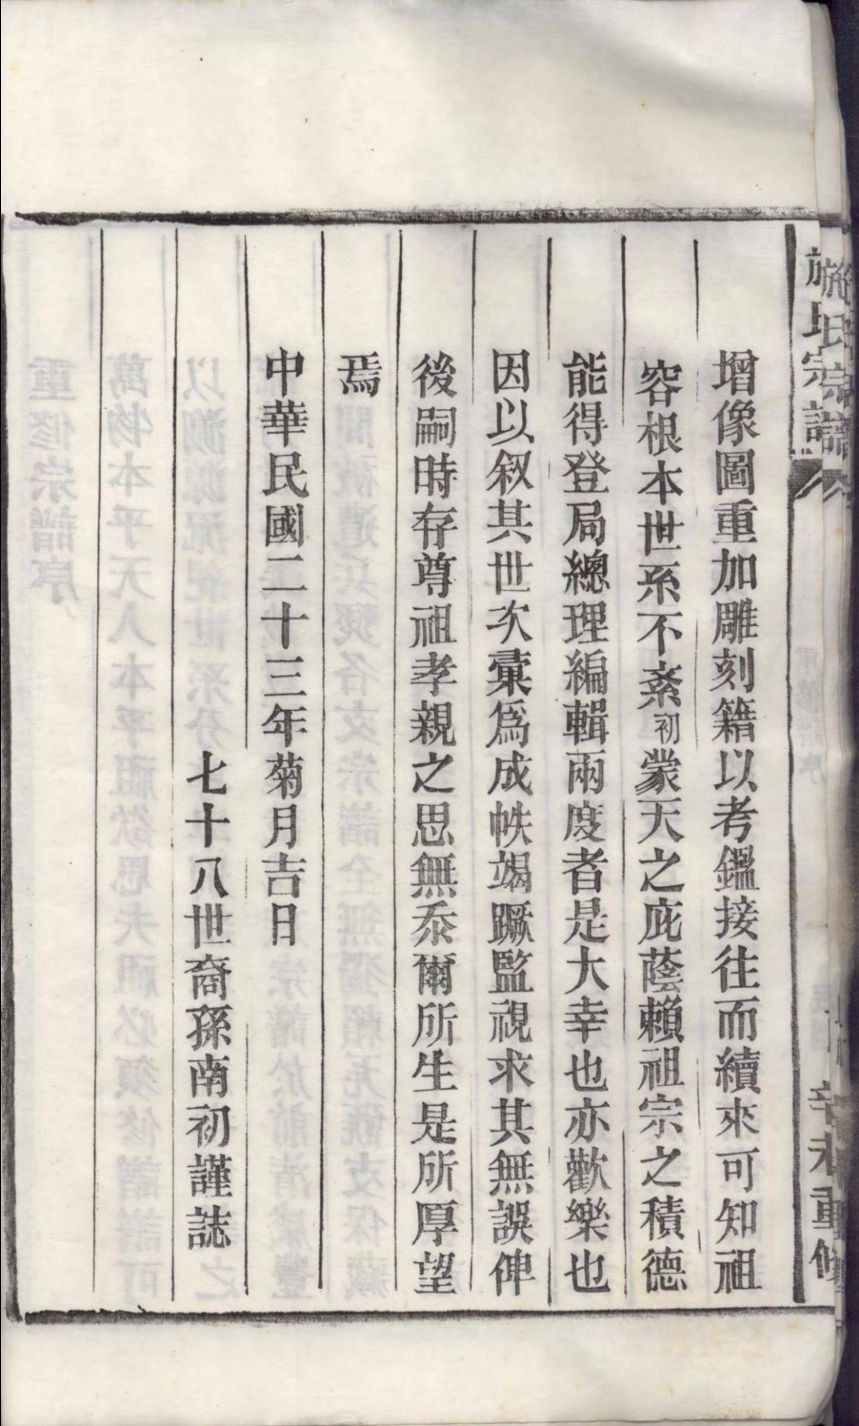 施氏宗譜
辛未重修
增像圖重加雕刻籍以考鑑接往而續來可知祖
容根本世系不紊初蒙天之庇蔭賴祖宗之積德
能得登局總理編輯兩度者是大幸也亦歡樂也
因以叙其世次彙爲成帙竭蹶監視求其無誤俾
後嗣時存尊祖孝親之思無忝爾所生是所厚望
焉
中華民國二十三年菊月吉日
七十八世裔孫南初謹誌